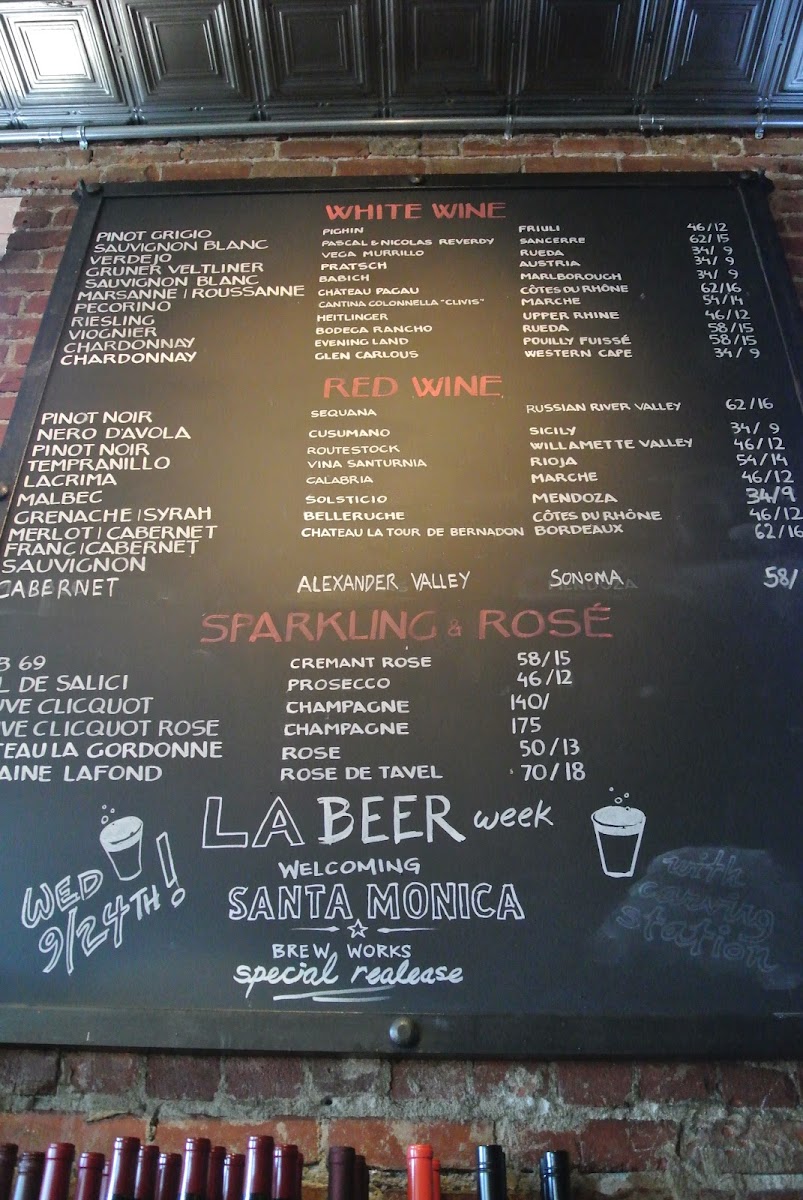 WHITE WINE
PINOT GRIGIO PIGHIN FRIULI 46/12
SAUVIGNON BLANC PASCAL & NICOLAS REVERDY SANCERRE 62/15
VERDEJO VEGA MURRILLO RUEDA 34/ 9
GRUNER VELTLINER PRATSCH AUSTRIA 34/ 9
SAUVIGNON BLANC BABICH MARLBOROUGH 34/ 9
MARSANNE | ROUSSANNE CHÂTEAU PAGAU CÔTES DU RHÔNE 62/16
PECORINO CANTINA COLONNELLA "CLIVIS" MARCHE 54/14
RIESLING HEITLINGER UPPER RHINE 46/12
VIOGNIER BODEGA RANCHO RUEDA 58/15
CHARDONNAY EVENING LAND POUILLY FUISSÉ 58/15
CHARDONNAY GLEN CARLOUS WESTERN CAPE 34/ 9
RED WINE
PINOT NOIR SEQUANA RUSSIAN RIVER VALLEY 62/16
NERO D'AVOLA CUSUMANO SICILY 34/ 9
PINOT NOIR ROUTESTOCK WILLAMETTE VALLEY 46/12
TEMPRANILLO VINA SANTURNIA RIOJA 54/14
LACRIMA CALABRIA MARCHE 46/12
MALBEC SOLSTICIO MENDOZA 34/9
GRENACHE | SYRAH BELLERUCHE CÔTES DU RHÔNE 46/12
MERLOT | CABERNET CHATEAU LA TOUR DE BERNADON BORDEAUX 62/16
FRANC | CABERNET
SAUVIGNON
CABERNET ALEXANDER VALLEY SONOMA 58/
SPARKLING & ROSÉ
B 69 CREMANT ROSE 58/15
L DE SALICI PROSECCO 46/12
UVE CLICQUOT CHAMPAGNE 140/
VE CLICQUOT ROSE CHAMPAGNE 175
TEAU LA GORDONNE ROSE 50/13
AINE LAFOND ROSE DE TAVEL 70/18
LA BEER week
WELCOMING
SANTA MONICA
BREW WORKS
special realease
WED
9/24TH!
with
carving
station